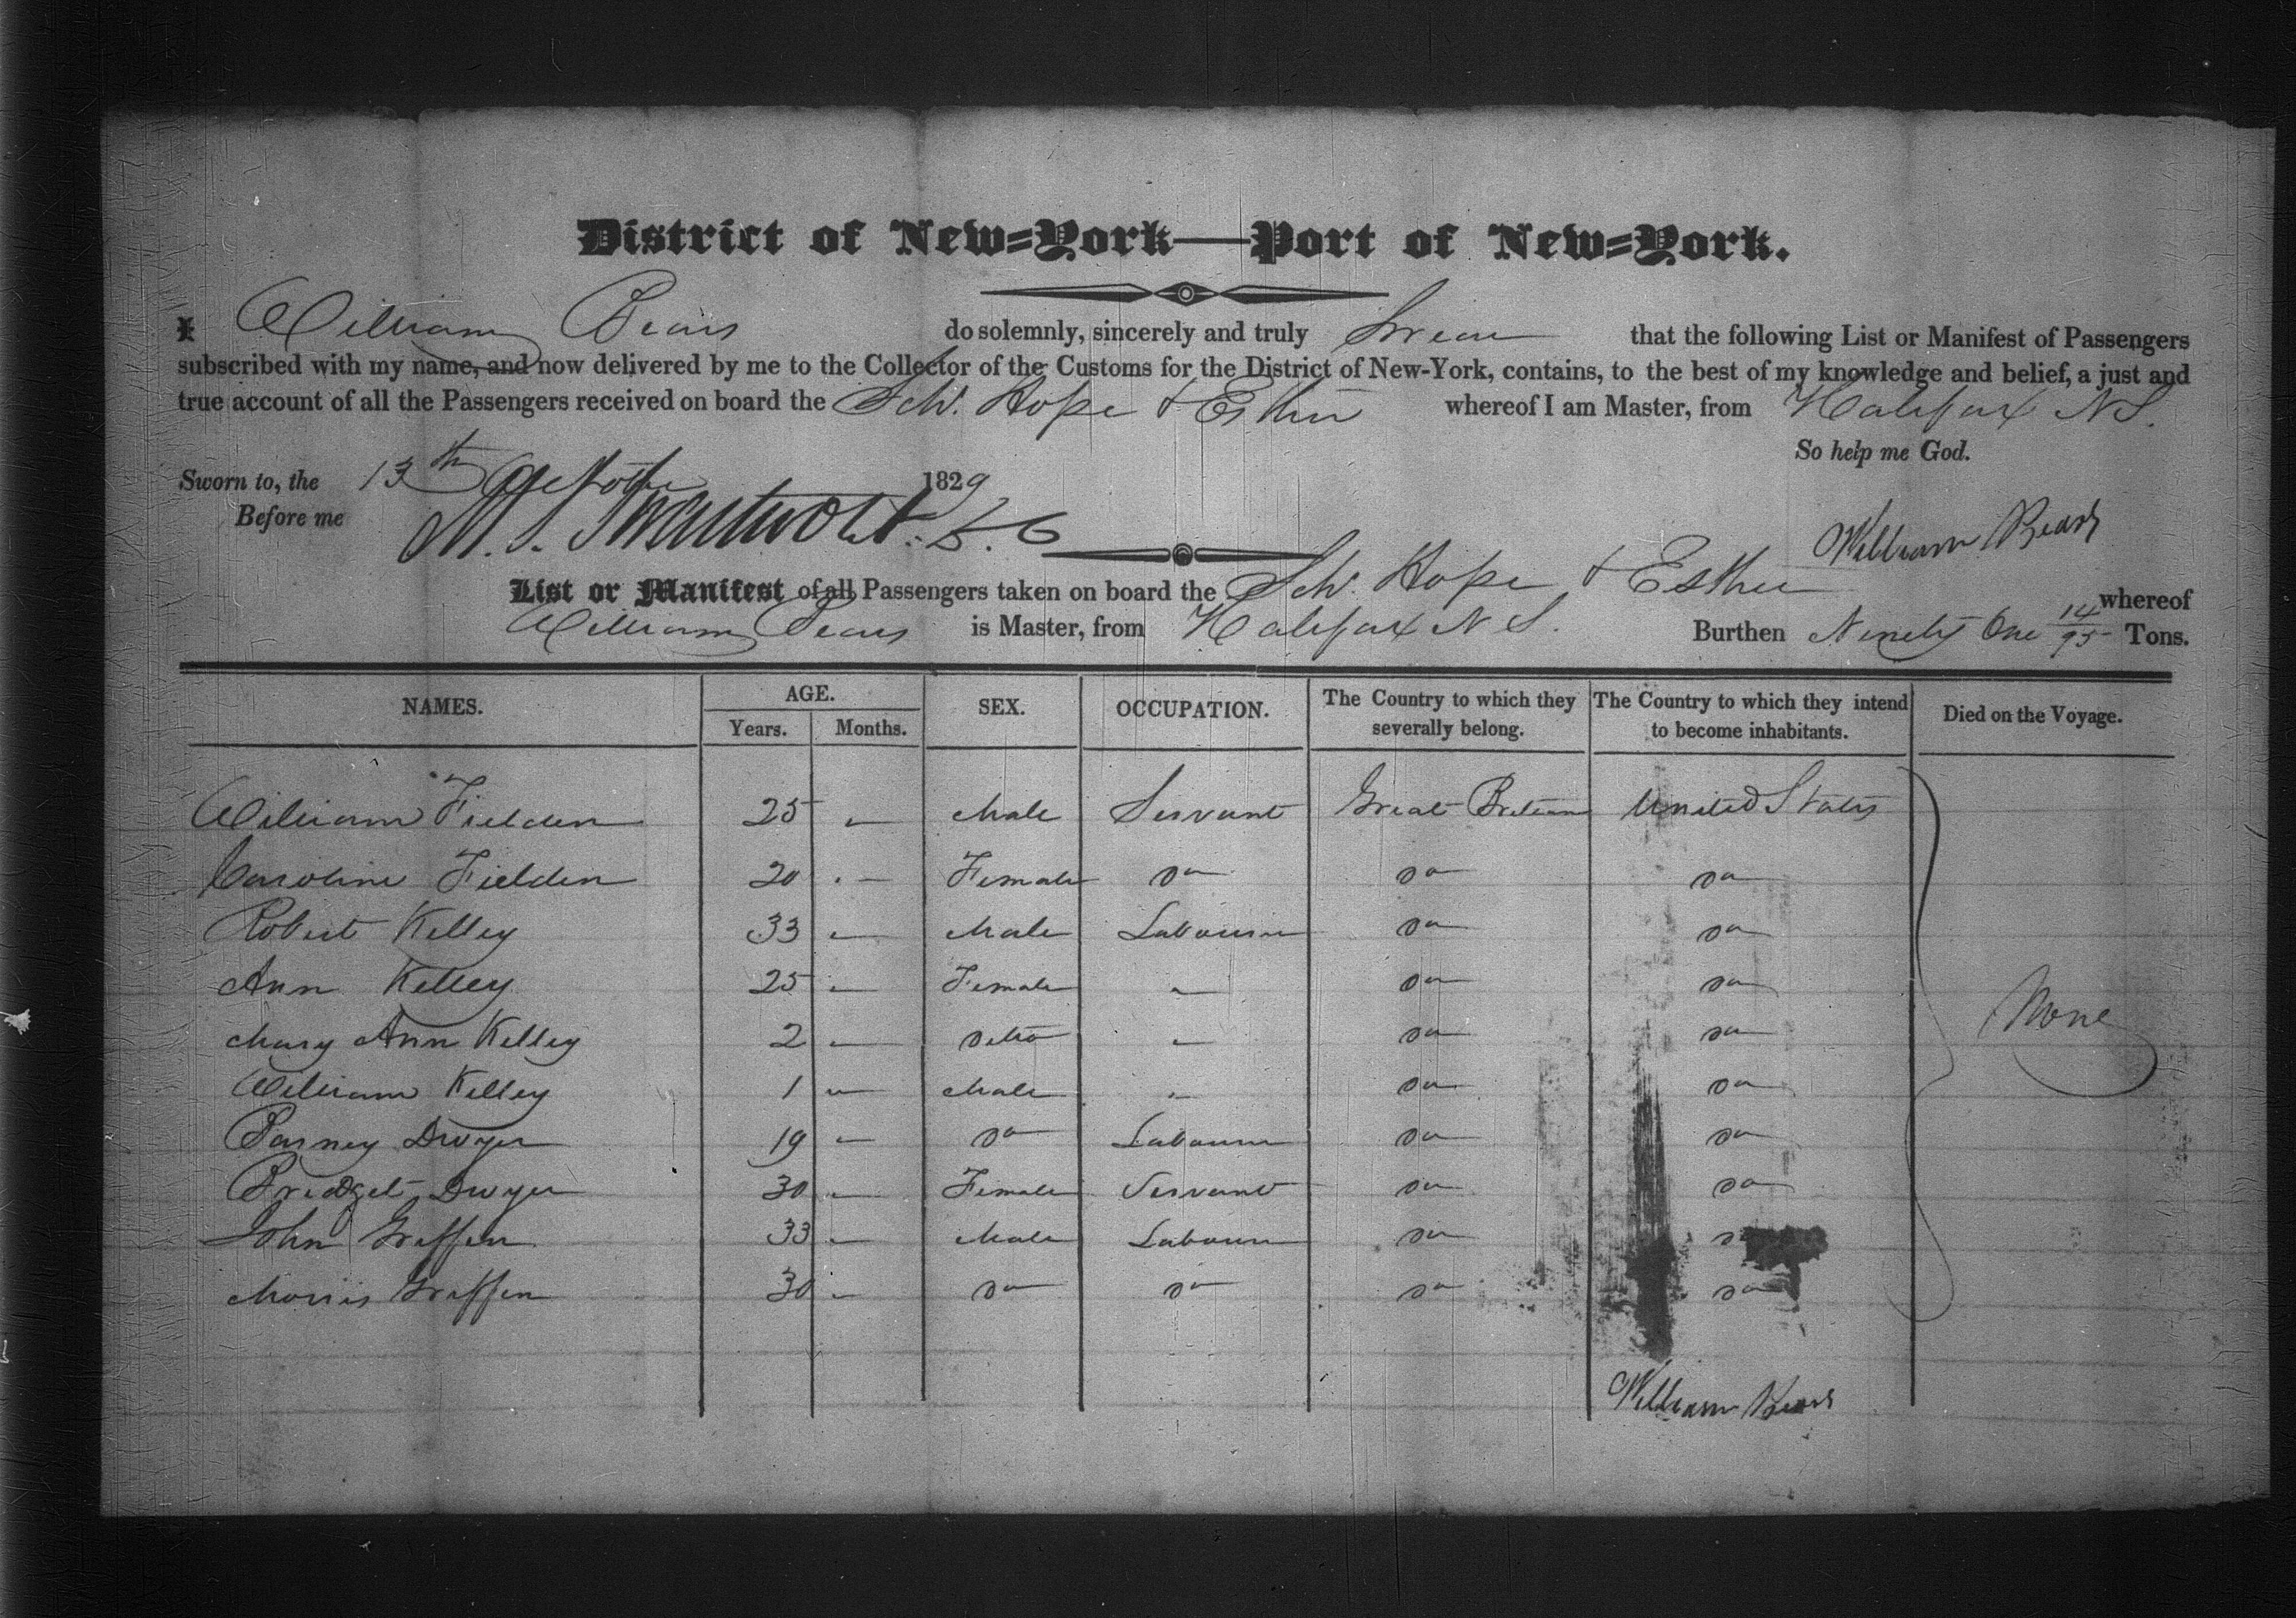 District of New=York—Port of New=York.
I William Bears do solemnly, sincerely and truly Swear that the following List or Manifest of Passengers
subscribed with my name, and now delivered by me to the Collector of the Customs for the District of New-York, contains, to the best of my knowledge and belief, a just and
true account of all the Passengers received on board the Schr. Hope & Esther whereof I am Master, from Halifax N S.
So help me God.
Sworn to, the 13th October 1829
Before me M. S. Swartwout
William Bears
List or Manifest of all Passengers taken on board the Schr. Hope & Esther whereof
William Bears is Master, from Halifax N S. Burthen Ninety One 14/95 Tons.
NAMES. AGE. SEX. OCCUPATION. The Country to which they severally belong. The Country to which they intend to become inhabitants. Died on the Voyage.
Years. Months.
William Fielden 25 " Male Servant Great Britain United States
Caroline Fielden 20 " Female Do Do Do
Robert Kelley 33 " Male Labourer Do Do
Ann Kelley 25 " Female " Do Do
Mary Ann Kelley 2 " Ditto " Do Do
None
William Kelley 1 " Male " Do Do
Barney Dwyer 19 " Do Labourer Do Do
Bridget Dwyer 30 " Female Servant Do Do
John Griffen 33 " Male Labourer Do Do
Morris Griffen 30 " Do Do Do Do
William Bears